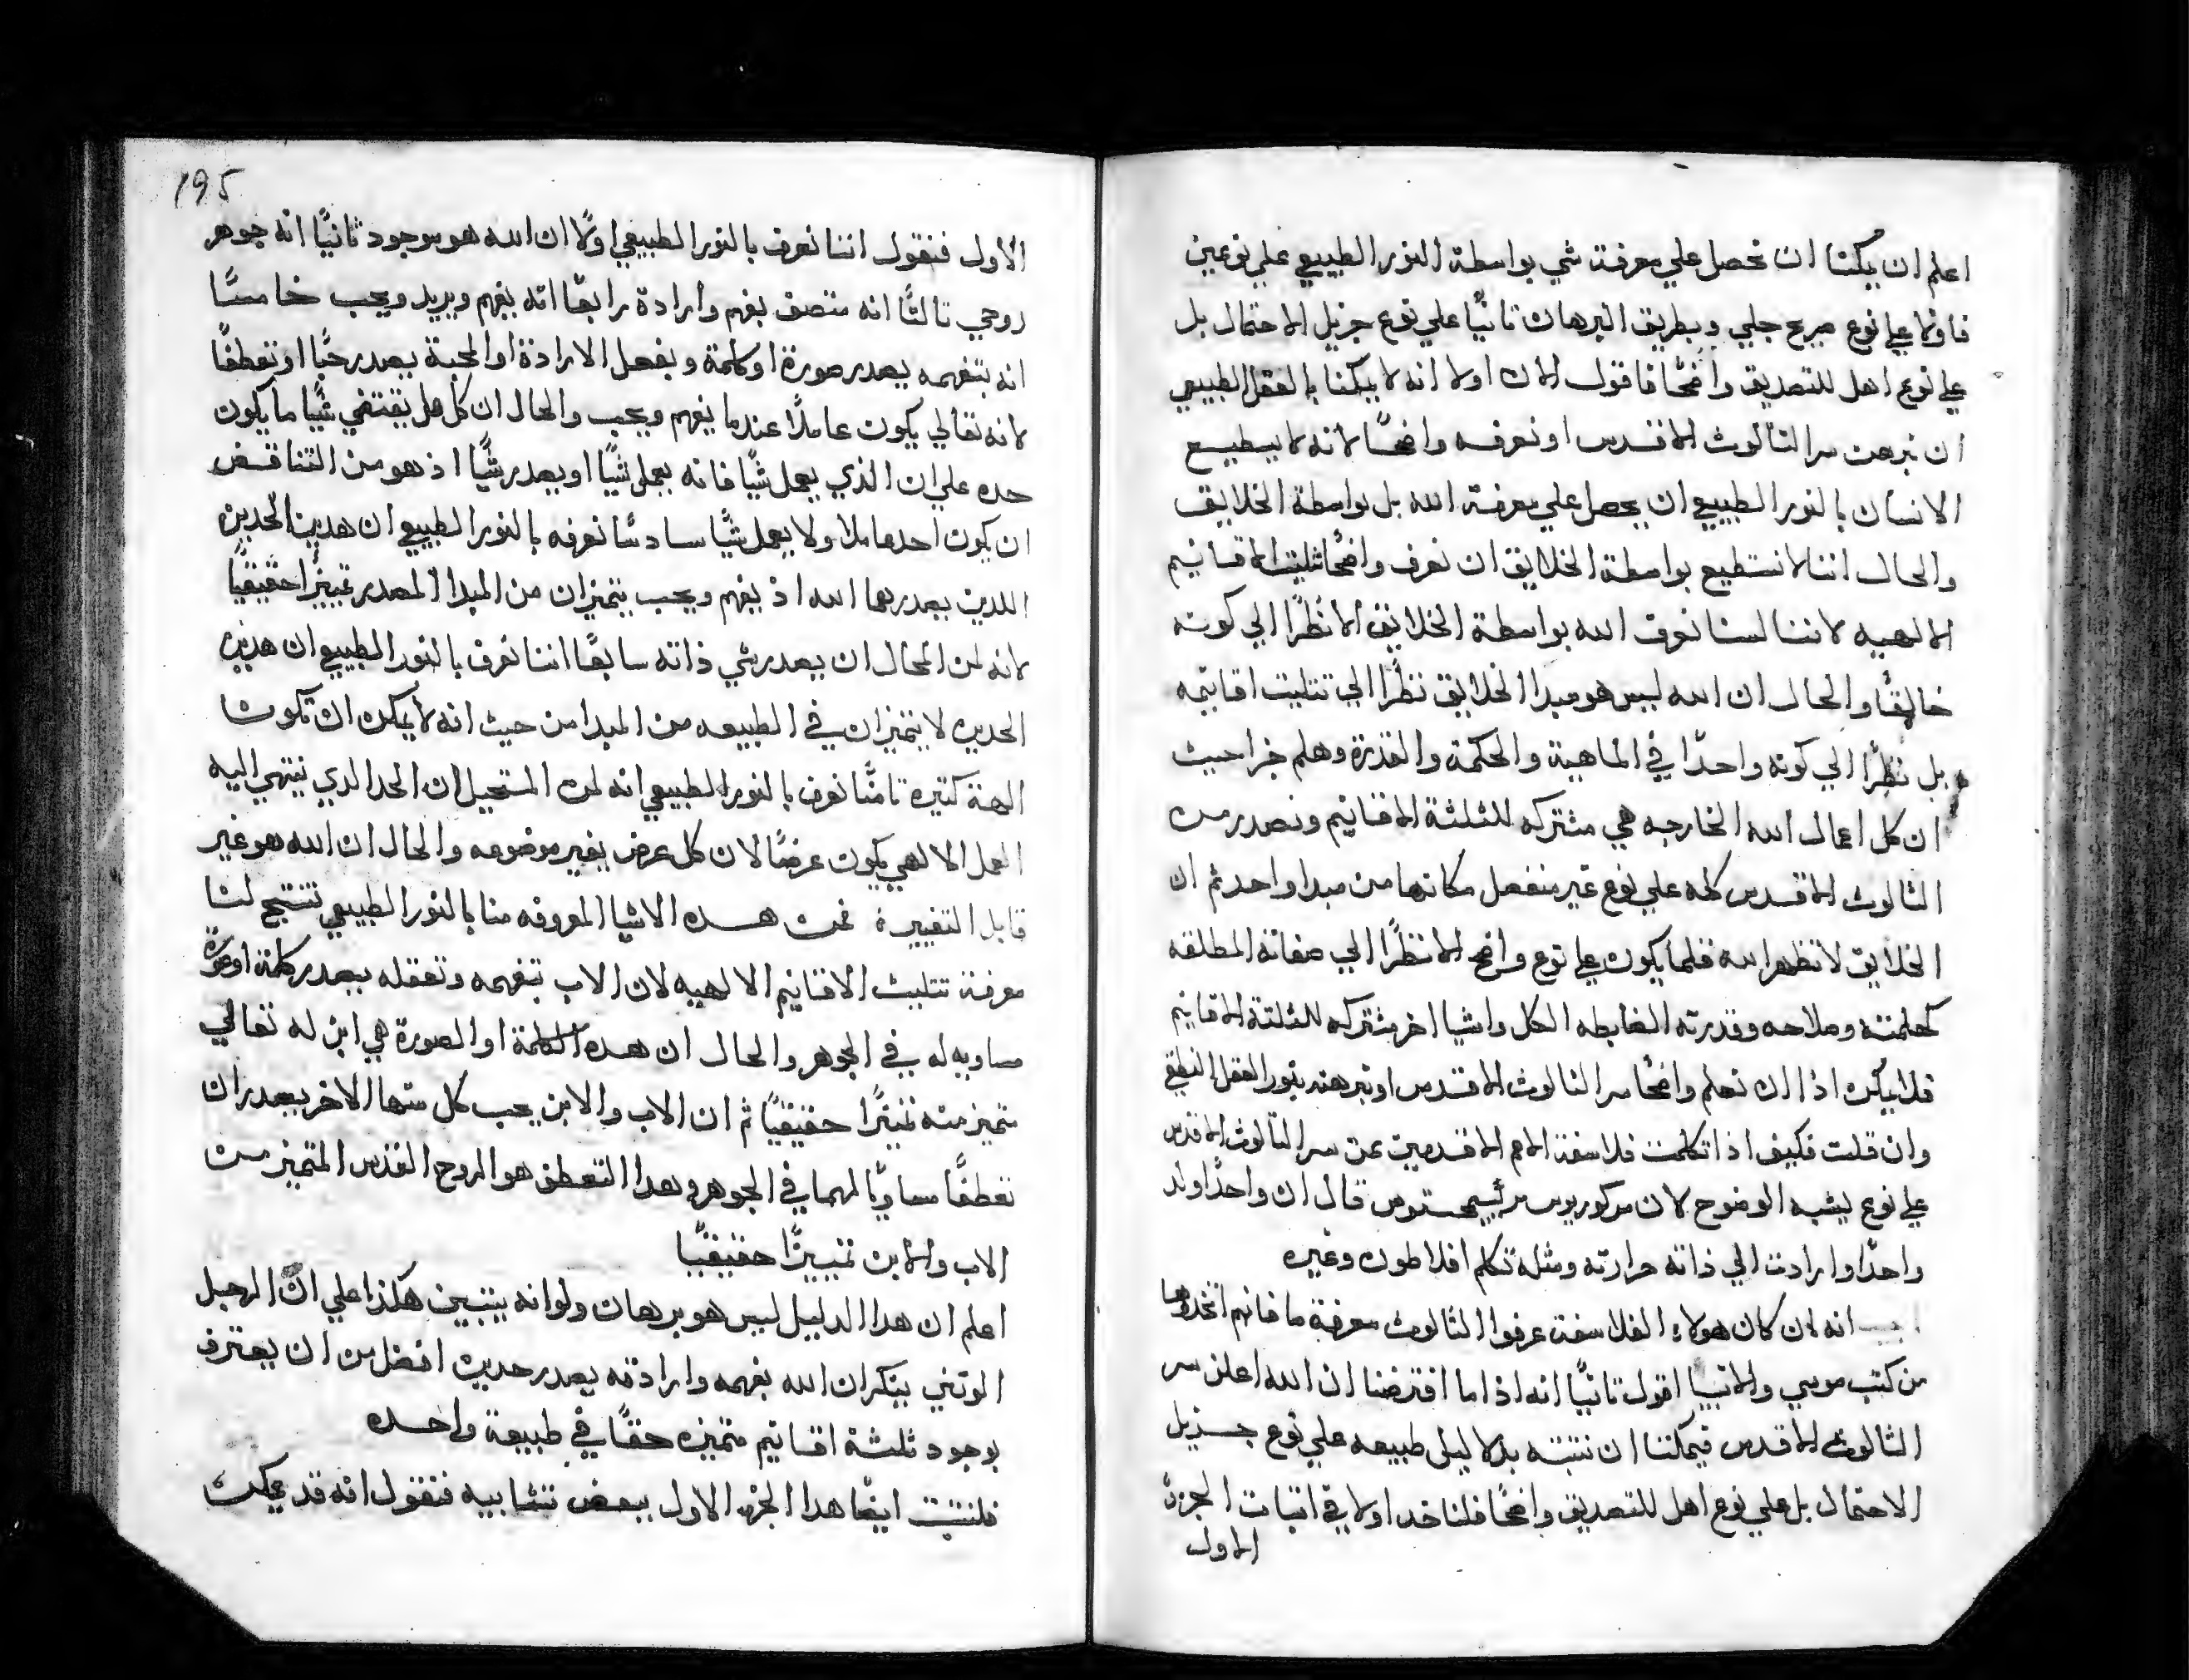 اعلم ان يمكننا ان نحصل علي معرفة شي بواسطة النور الطبيعي علي نوعين
فاولا علي نوع صريح جلي وبطريق البرهان ثانيًا علي نوع جزيل الاحتمال بل
علي نوع اهل للتصديق واضحًا فاقول الان اولا انه لا يمكننا بالعقل الطبيعي
ان نبرهن سر الثالوث الاقدس او نعرفه واضحًا لانه لا يسطيع
الانسان بالنور الطبيعي ان يحصل علي معرفة الله بل بواسطة الخلايق
والحال اننا لا نستطيع بواسطة الخلايق ان نعرف واضحًا تثليث الاقانيم
الالهيه لاننا لسنا نعرف الله بواسطة الخلايق الا نظرًا الي كونه
خالقًا والحال ان الله ليس هو مبدا الخلايق نظرًا الي تثليث اقانيمه
بل نظرًا الي كونه واحدًا في الماهية والحكمة والقدرة وهلم جرا حيث
ان كل اعمال الله الخارجه هي مشتركه للثلثة الاقانيم ونصدر من
الثالوث الاقدس كله علي نوع غير منفصل مكانها من مبدا واحد ثم ان
الخلايق لا تظهر الله فلما يكون علي نوع واضح الا نظرًا الي صفاته المطلقه
كحكمته وصلاحه وقدرته الضابطه الكل واشيا اخر مشتركه للثلثة الاقانيم
فلا يمكن اذا ان نعلم واضحًا سر الثالوث الاقدس او نبرهنه بنور العقل النطقي
وان قلت فكيف اذا تكلمت فلاسفة الامم الاقدمين عن سر الثالوث الاقدس
علي نوع يشبه الوضوح لان مركوريوس قال ان واحدًا ولد
واحدًا وارادت الي ذاته حرارته ومثله تكلم افلاطون وغيره
اجيب انه لان كان هولاء الفلاسفة عرفوا الثالوث معرفة ما فانهم اتخذوها
من كتب موسي والانبيا اقول ثانيًا انه اذا ما افترضنا ان الله اعلن سر
الثالوث الاقدس فيمكننا ان نثبته بدلايل طبيعه علي نوع جزيل
الاحتمال بل علي نوع اهل للتصديق واضحًا فلناخد اولا في اثبات الجزء
الاول
195
الاول فنقول اننا نعرف بالنور الطبيعي اولًا ان الله هو موجود ثانيًا انه جوهر
روحي ثالثًا انه متصف بفهم وارادة رابعًا انه يفهم ويريد ويحب خامسًا
انه بتفهمه يصدر صورة او كلمة وبفعل الارادة او المحبة يصدر حبًا او تعطفًا
لانه تعالي يكون عاملًا عندما يفهم ويحب والحال ان كل عمل يقتضي شيًا ما يكون
حده علي ان الذي يعمل شيًا فانه يعمل شيًا او يصدر شيًا اذ هو من التناقض
ان يكون احد عاملا ولا يعمل شيًا سادسًا نعرفه بالنور الطبيعي ان هدين الحدين
اللدين يصدرهما الله اذ يفهم ويحب يتميزان من المبدا المصدر تمييزًا حقيقيًا
لانه لمن المحال ان يصدر شي ذاته سابعًا اننا نعرف بالنور الطبيعي ان هدين
الحدين لا يتميزان في الطبيعه من المبدا من حيث انه لا يمكن ان تكون
الهة كتيرة ثامنًا نعرف بالنور الطبيعي انه لمن المستحيل ان الحد الدي ينتهي اليه
العمل الالهي يكون عرضًا لان كل عرض يغير موضوعه والحال ان الله هو غير
قابل التغيير فمن هده الاشيا المعروفه منا بالنور الطبيعي تنتج لنا
معرفة تتليث الاقانيم الالهيه لان الاب بتفهمه وتعقله يصدر كلمة او صورة
مساويه له في الجوهر والحال ان هده الكلمة او الصورة هي ابن له تعالي
متميز منه تميزًا حقيقيًا ثم ان الاب والابن يحب كل منهما الاخر يصدران
تعطفًا مساويًا لهما في الجوهر وهدا التعطف هو الروح القدس المتميز من
الاب والابن تمييزًا حقيقيًا
اعلم ان هدا الدليل ليس هو برهان ولو انه يتبين هكذا علي ان الرجل
الوتني ينكر ان الله بفهمه وارادته يصدر حدين افضل من ان يعترف
بوجود ثلثة اقانيم متميزه حقًا في طبيعة واحده
فلنثبت ايضًا هدا الجزء الاول ببعض تشابيه فنقول انه قد يمكن